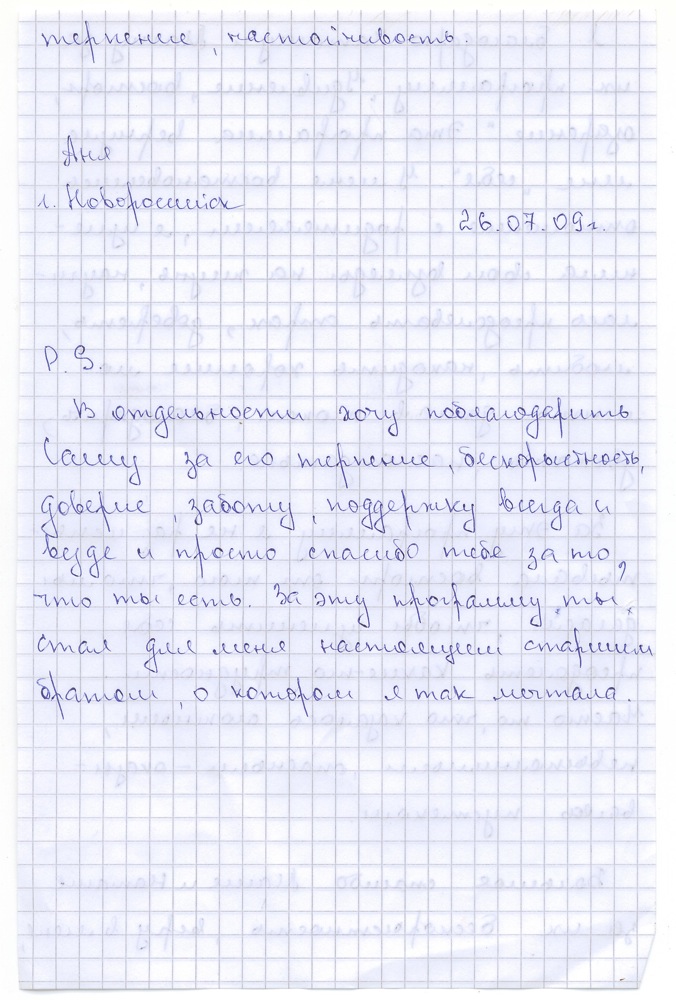 терпение, настойчивость.
Аня
г. Новороссийск
26.07.09г.
P. S.
В отдельности хочу поблагодарить
Сашу за его терпение, бескорыстность,
доверие, заботу, поддержку всегда и
везде и просто спасибо тебе за то,
что ты есть. За эту программу „ты“
стал для меня настоящим старшим
братом, о котором я так мечтала.